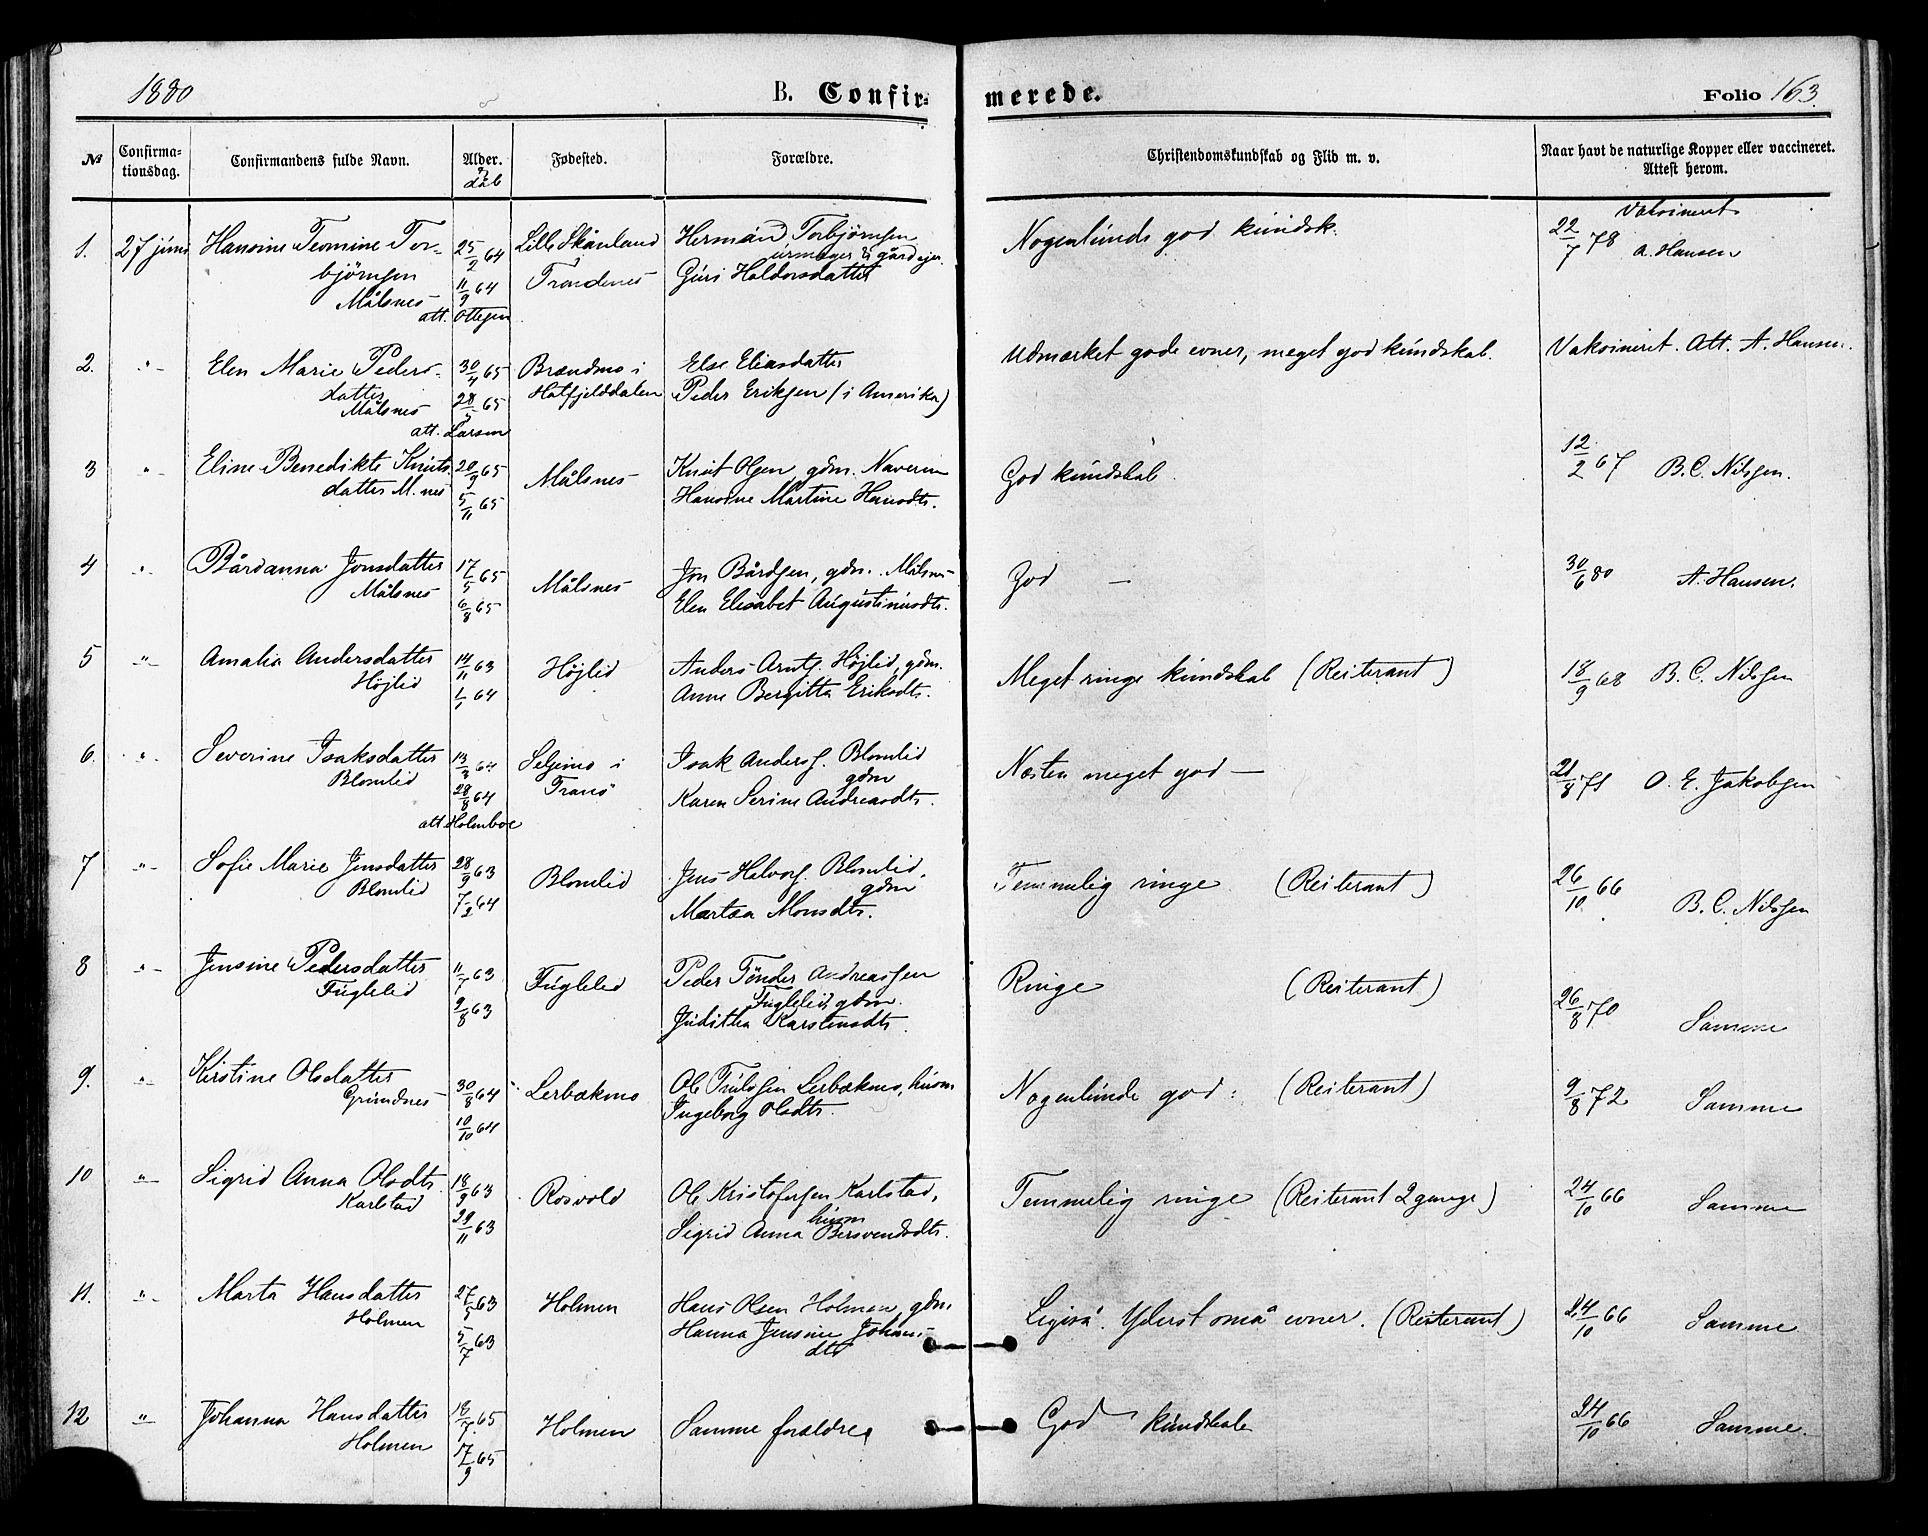 1880 B. Confirmerede. Folio 163.
№ Confirmationsdag. Confirmandens fulde Navn. Alder. dåb Fødested. Forældre. Christendomskundskab og Flid m. v. Naar havt de naturlige Kopper eller vaccineret. Attest herom.
1. 27 juni Hansine Teomine Tor- 25/2 64 Lille Skånland Herman Torbjørngen Nogenlunde god kundsk. 22/7 78 Vakcineret
bjørngen 11/9 64 Trondenes urmager & gårdejer A. Hansen
Målsnes Guri Haldorsdatter
att. Ottesen
2. " Elen Marie Peders- 30/4 65 Brændmo i Else Eliasdatter Udmærket gode evner, meget god kundskab. Vakcineret. Att. A. Hansen.
datter 28/5 65 Hatfjelddalen Peder Eriksen (i Amerika)
Målsnes
att. Larsen
3 " Eline Benedikte Knuts 20/9 65 Målsnes Knut Olsen, gdm. Naveren God kundskab. 12/2 67 B. C. Nilsen.
datter M.nes 5/11 65 Hansine Martine Hansdtr.
4 " Bårdanna Jonsdatter 17/5 65 Målsnes Jon Bårdsen, gdm. Målsnes God — 30/6 80 A. Hansen.
Målsnes 6/8 65 Elen Elisabet Augustinusdtr.
5 " Amalia Andersdatter 14/11 63 Højlid Anders Arnts. Højlid, gdm. Meget ringe kundskab (Reiterant) 18/9 68 B. C. Nilsen
Højlid 1/1 64 Anne Bergitta Eriksdtr.
6. " Severine Isaksdatter 13/3 64 Seljemo i Isak Anders. Blomlid Næsten meget god — 21/8 71 O. E. Jakobsen
Blomlid 28/8 64 Tranø gdm
att. Holmboe Karen Serine Andreasdtr.
7 " Sofie Marie Jensdatter 28/9 63 Blomlid Jens Halvors. Blomlid, Temmelig ringe (Reiterant) 26/10 66 B. C. Nilsen
Blomlid 7/2 64 gdm
Martha Monsdtr.
8 " Jensine Pedersdatter 11/7 63 Fuglelid Peder Tønder Andreassen Ringe (Reiterant) 26/8 70 Samme
Fuglelid 9/8 63 Fuglelid, gdm.
Juditha Karstensdtr.
9. " Kirstine Olsdatter 30/8 64 Lerbækmo Ole Trulssen Lerbækmo, husm Nogenlunde god: (Reiterant) 9/8 72 Samme
Grundnes 10/10 64 Ingeborg Olsdtr.
10 " Sigrid Anna Olsdtr. 18/9 63 Rosvold Ole Kristofersen Karlstad, Temmelig ringe (Reiterant 2 gange) 24/10 66 Samme
Karlstad 29/11 63 husm
Sigrid Anna Bersvendsdtr.
11. " Marta Hansdatter 27/5 63 Holmen Hans Olsen Holmen, gdm. Ligeså. Yderst små evner. (Reiterant) 24/10 66 Samme
Holmen 5/7 63 Hanna Jensine Johans-
dtr
12 " Johanna Hansdatter 18/7 65 Holmen Samme forældre God kundskab 24/10 66 Samme.
Holmen 17/9 65